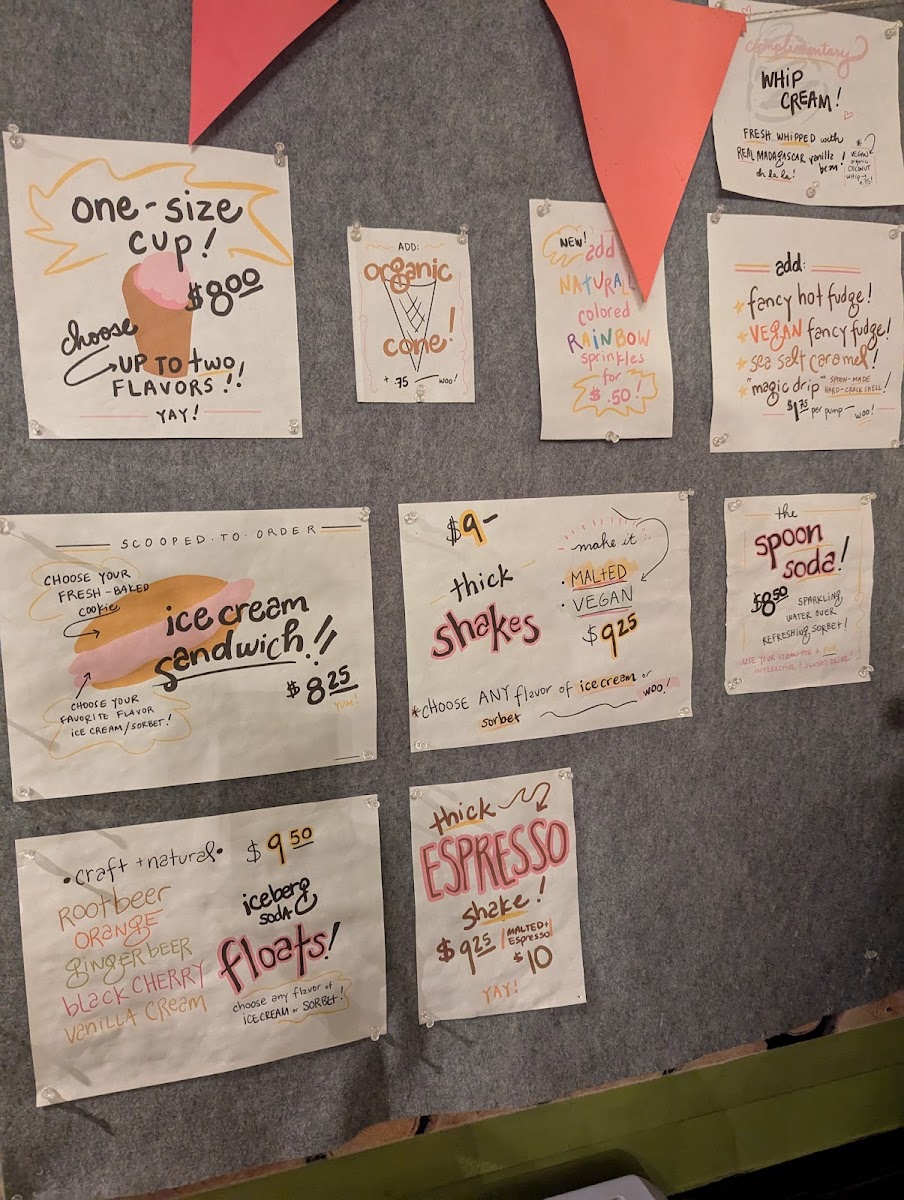 complimentary
WHIP
CREAM!
FRESH WHIPPED with
REAL MADAGASCAR vanilla
bean!
oh la la!
*
VEGAN
organic
COCONUT
WHIP +
.75!
one-size
cup!
$8.00
choose
UP TO two
FLAVORS!!
YAY!
ADD:
organic
cone!
+ .75 — woo!
NEW! add
NATURAL
colored
RAINBOW
sprinkles
for
$.50!
add:
fancy hot fudge!
VEGAN fancy fudge!
sea salt caramel!
"magic drip" SPOON-MADE
HARD-CRACK SHELL!
$1.75 per pump — woo!
SCOOPED·TO·ORDER
CHOOSE YOUR
FRESH-BAKED
cookie
ice cream
sandwich!!
$8.25
YUM!
CHOOSE YOUR
FAVORITE FLAVOR
ICE CREAM/SORBET!
$9-
thick
shakes
make it:
• MALTED
• VEGAN
$9.25
*CHOOSE ANY flavor of ice cream or
sorbet
woo!
the
spoon
soda!
$8.50
SPARKLING
WATER OVER
REFRESHING SORBET!
USE YOUR STRAW FOR A
INTERACTIVE
•craft + natural•
Root beer
ORANGE
gINgER BEER
black CHERRY
vanilla cream
$9.50
iceberg
SODA
floats!
choose any flavor of
ICE CREAM or SORBET!
thick
ESPRESSO
shake!
$9.25 / MALTED +
Espresso
$10
YAY!